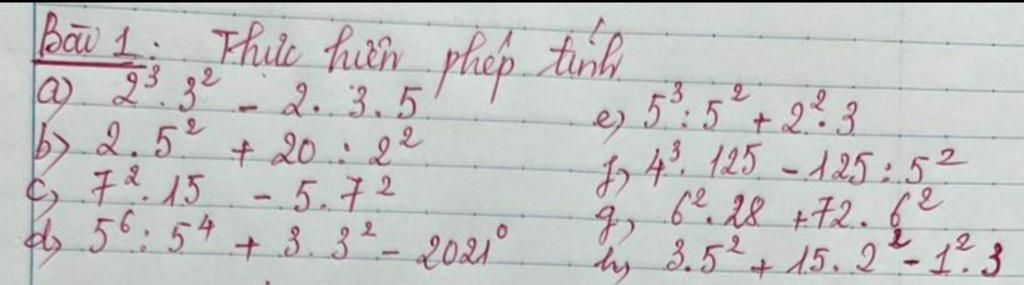 Bài 1: Thực hiện phép tính
a) 2³.3² - 2.3.5
b) 2.5² + 20 : 2²
c) 7².15 - 5.7²
d) 5⁶ : 5⁴ + 3.3² - 2021⁰
e) 5³ : 5² + 2².3
f) 4³.125 - 125 : 5²
g) 6².28 + 72.6²
h) 3.5² + 15.2² - 1².3